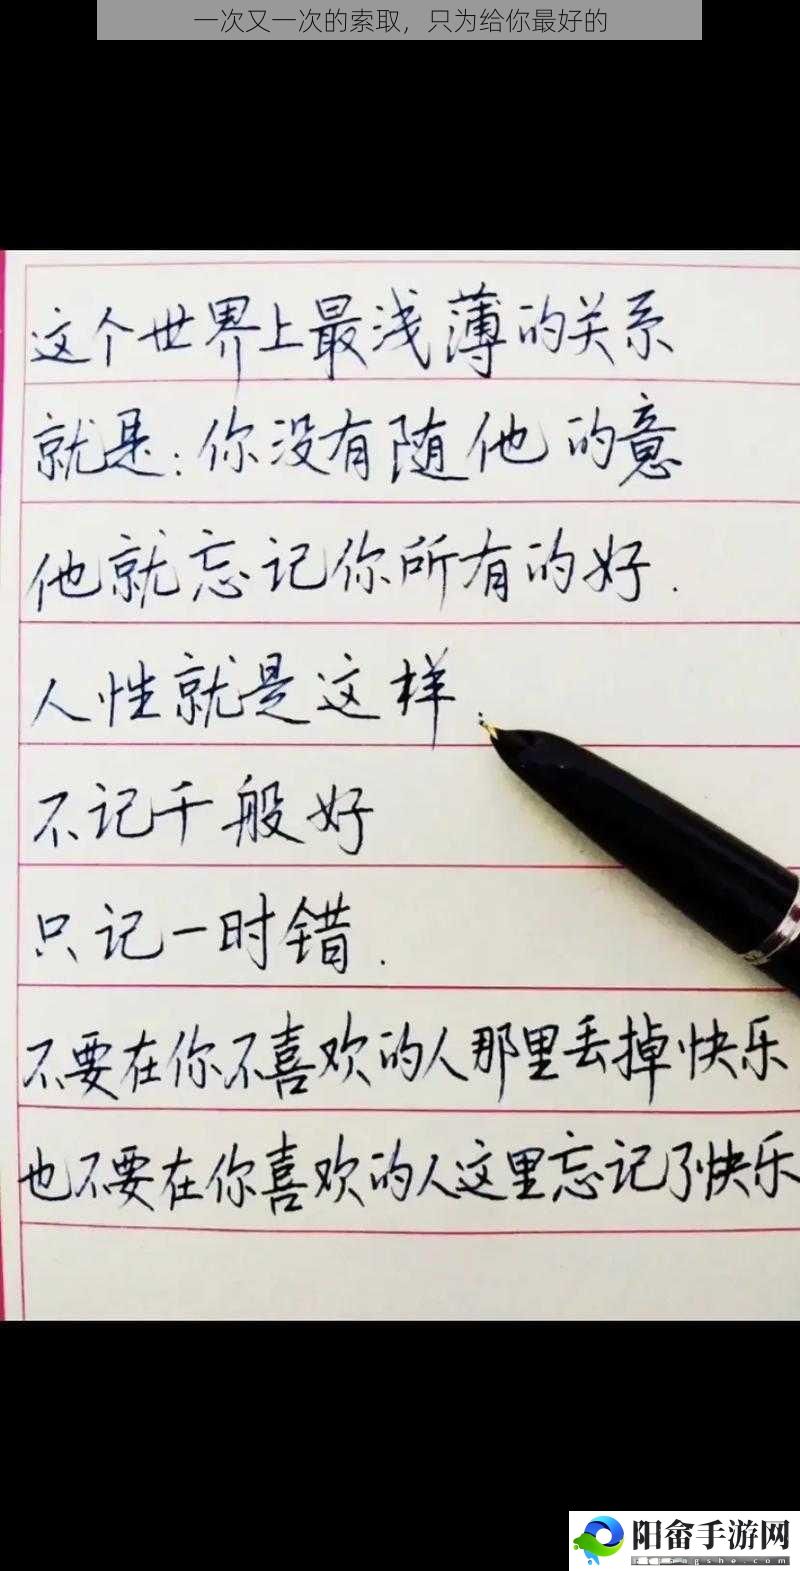 一次又一次的索取，只为给你最好的
这个世界上最浅薄的关系
就是：你没有随他的意
他就忘记你所有的好.
人性就是这样.
不记千般好
只记一时错.
不要在你不喜欢的人那里丢掉快乐
也不要在你喜欢的人这里忘记了快乐
阳畲手游网